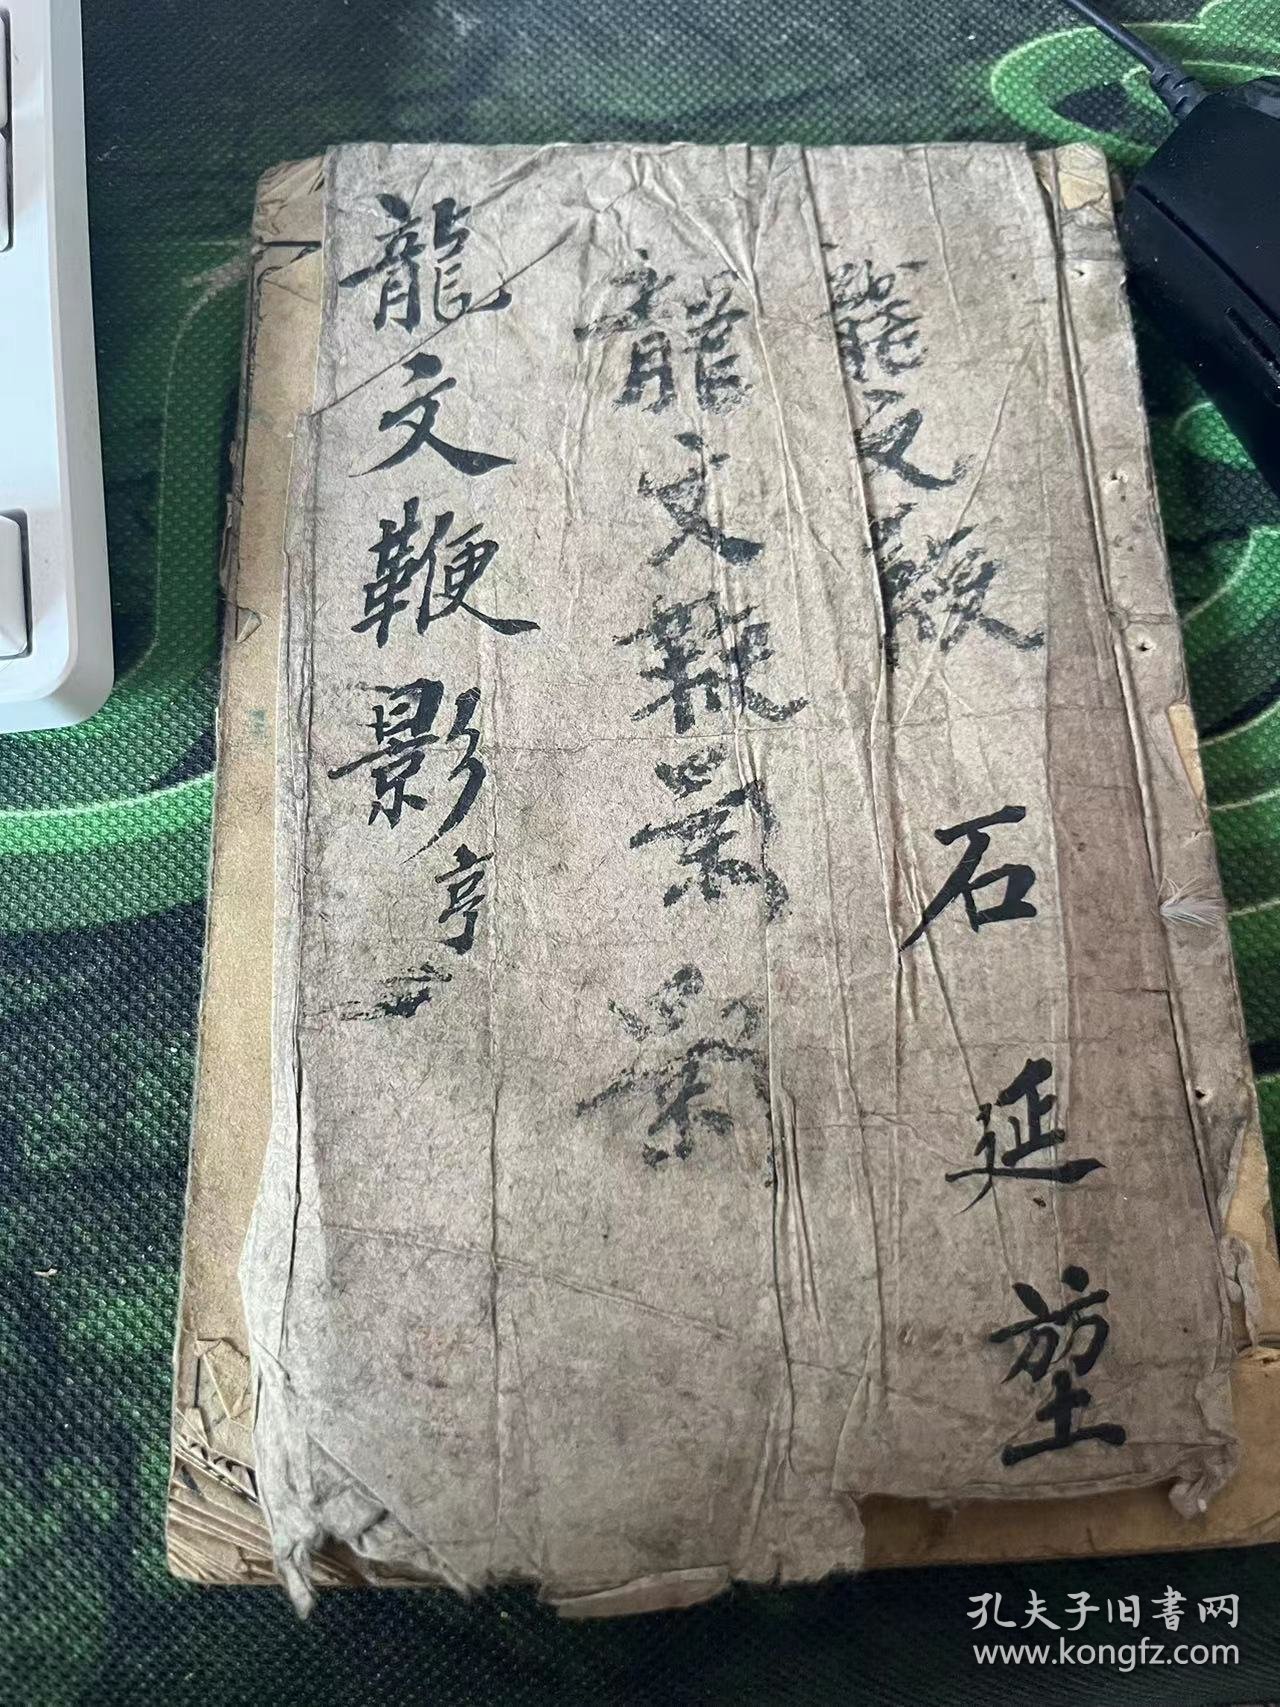 石延堃
龍文鞭
龍文鞭影
龍文鞭影亨
孔夫子旧書网
www.kongfz.com